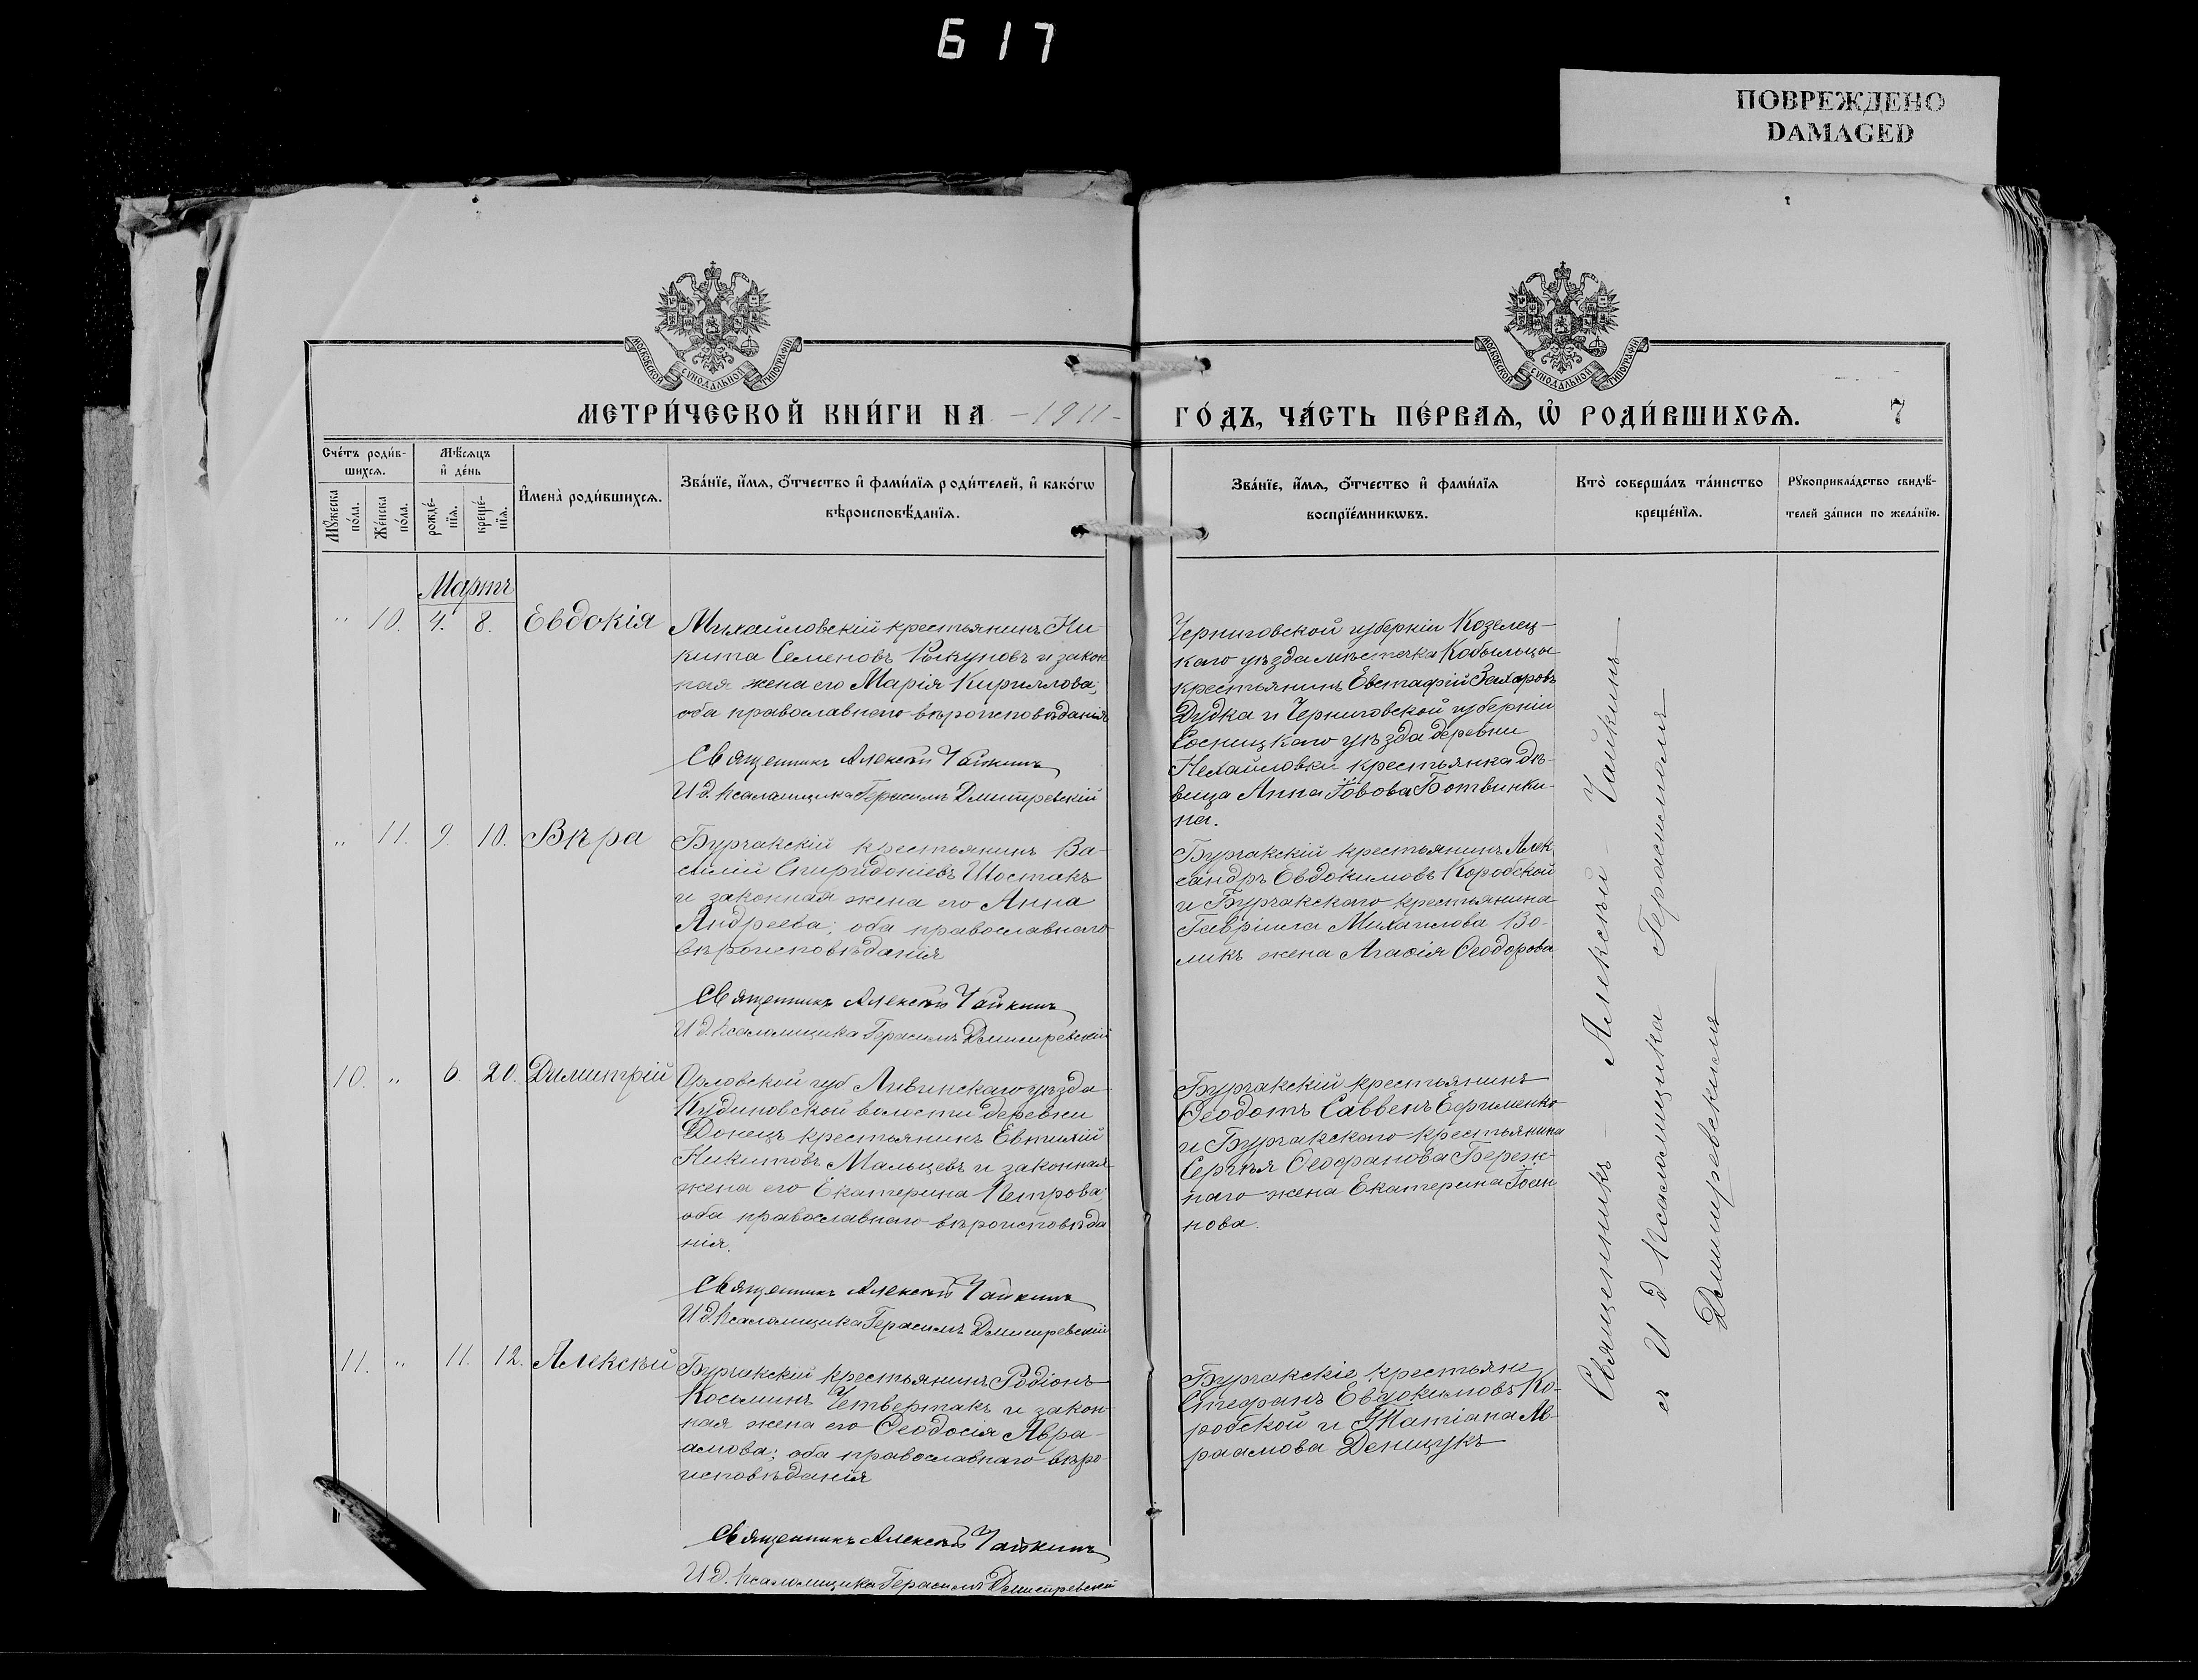 617
ПОВРЕЖДЕНО
DAMAGED
МОСКОВСКОЙ СѴНОДАЛЬНОЙ ТИПОГРАФІИ
МОСКОВСКОЙ СѴНОДАЛЬНОЙ ТИПОГРАФІИ
МЕТРИ́ЧЕСКОЙ КНИ́ГИ НА -1911-
ГО́ДЪ, ЧА́СТЬ ПЕ́РВАѦ, Ѡ҆ РОДИ́ВШИХСѦ. 7
Сче́тъ роди́в-
шихсѧ.
Мꙋ́жеска
по́ла.
Же́нска
по́ла.
Мѣ́сѧцъ
и҆ де́нь
рожде́-
нїѧ.
креще́-
нїѧ.
И҆мена̀ роди́вшихсѧ.
Зва́нїе, и҆́мѧ, ѻ҆́тчество и҆ фами́лїѧ роди́телей, и҆ како́гѡ
вѣроисповѣ́данїѧ.
Зва́нїе, и҆́мѧ, ѻ҆́тчество и҆ фами́лїѧ
воспрїе́мникѡвъ.
Кто̀ соверша́лъ та́инство
креще́нїѧ.
Рꙋкоприкла́дство свидѣ́-
телей за́писи по жела́нїю.
Мартъ
" 10. 4. 8. Евдокія
Михайловскій крестьянинъ Ни-
кита Семеновъ Рыкуновъ и закон
ная жена его Марія Кириллова;
оба православнаго вѣроисповѣданія
Священникъ Алексѣй Чайкинъ
И д. псаломщика Герасимъ Дмитревскій
Черниговской губерніи Козелец-
каго уѣзда мѣстечка Кобыльцы
крестьянинъ Евстафій Захаровъ
Дудка и Черниговской губерніи
Сосницкаго уѣзда деревни
Нехайловки крестьянка дѣ-
вица Анна Іовова Ботвинки-
на.
" 11. 9. 10. Вѣра
Бурчакскій крестьянинъ Ва-
силій Спиридоніевъ Шостакъ
и законная жена его Анна
Андреева; оба православнаго
вѣроисповѣданія
Священникъ Алексѣй Чайкинъ
И д. псаломщика Герасимъ Дмитревскій
Бурчакскій крестьянинъ Алек
сандръ Евдокимовъ Коробской
и Бурчакскаго крестьянина
Гавріила Михаилова Во-
ликъ жена Агаѳія Ѳеодорова
10. " 6. 20. Димитрій
Орловской губ Ливинскаго уѣзда
Кудиновской волости деревни
Донецъ крестьянинъ Евтихій
Никитовъ Мальцевъ и законная
жена его Екатерина Петрова;
оба православнаго вѣроисповѣда
нія.
Священникъ Алексѣй Чайкинъ
И д. псаломщика Герасимъ Дмитревскій
Бурчакскій крестьянинъ
Ѳеодотъ Саввенъ Ефименко
и Бурчакскаго крестьянина
Сергѣя Ѳеофанова Береж-
наго жена Екатерина Іоан
нова.
11. " 11. 12. Алексѣй
Бурчакскій крестьянинъ Родіонъ
Косьминъ Четвертакъ и закон
ная жена его Ѳеодосія Авра-
амова; оба православнаго вѣро
исповѣданія
Священникъ Алексѣй Чайкинъ
И д. псаломщика Герасимъ Дмитревскій
Бурчакскіе крестьяне
Стефанъ Евдокимовъ Ко-
робской и Татіана Ав-
раамова Денищукъ
Священникъ - Алексѣй - Чайкинъ
съ И д Псаломщика Герасимомъ
Дмитревскимъ